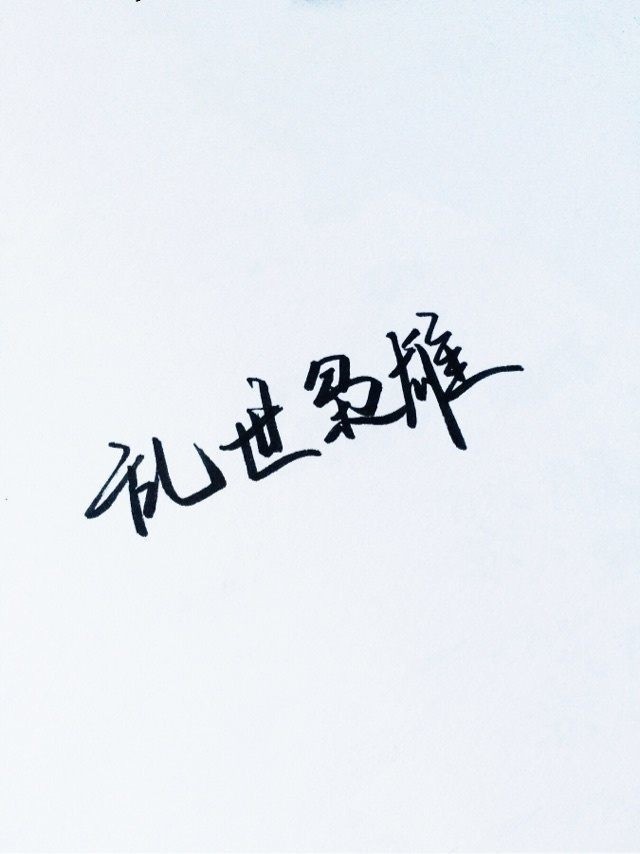 乱世枭雄